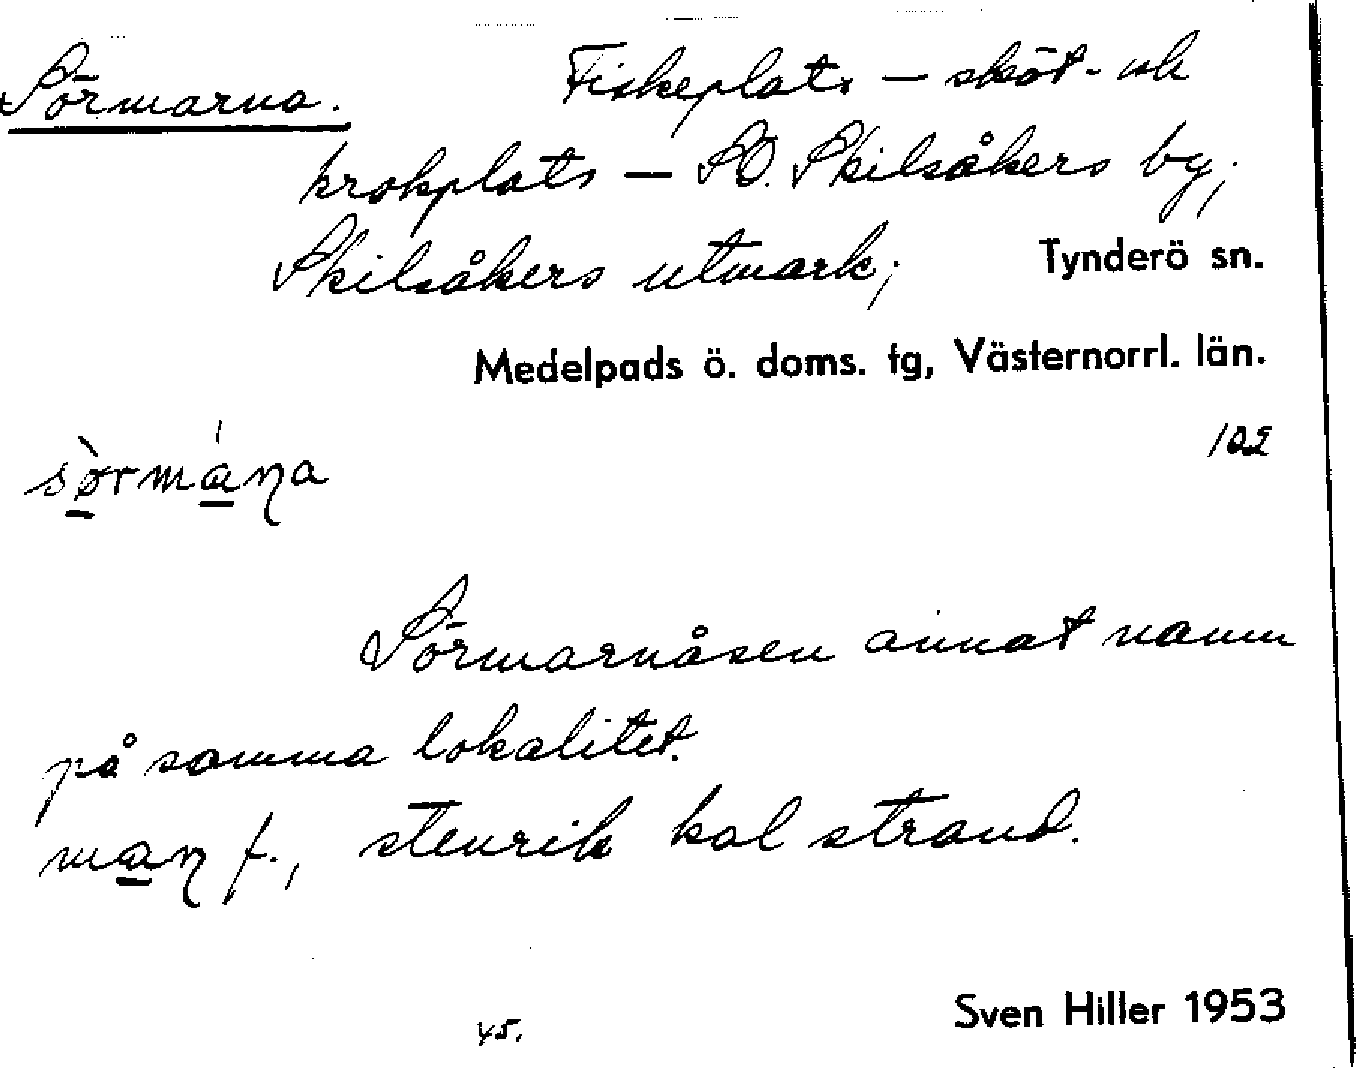 Sörmarna. Fiskeplats – sköt- och
krokplats – SO. Skilsåkers by;
Skilsåkers utmark; Tynderö sn.
Medelpads ö. doms. tg, Västernorrl. län.
102
sørmaŋa
Sörmarnåsen annat namn
på samma lokalitet.
maŋ f., stenrik kal strand.
45. Sven Hiller 1953